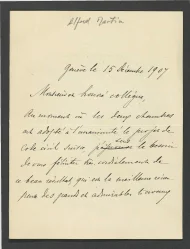 Alfred Martin
Genève le 15 Décembre 1907
Monsieur et honoré collègue,
Au moment où les deux chambres
ont adopté à l'unanimité le projet de
code civil suisse le besoin
de vous féliciter cordialement de
ce beau résultat, qui est la meilleure récom
pense des grands et admirables travaux